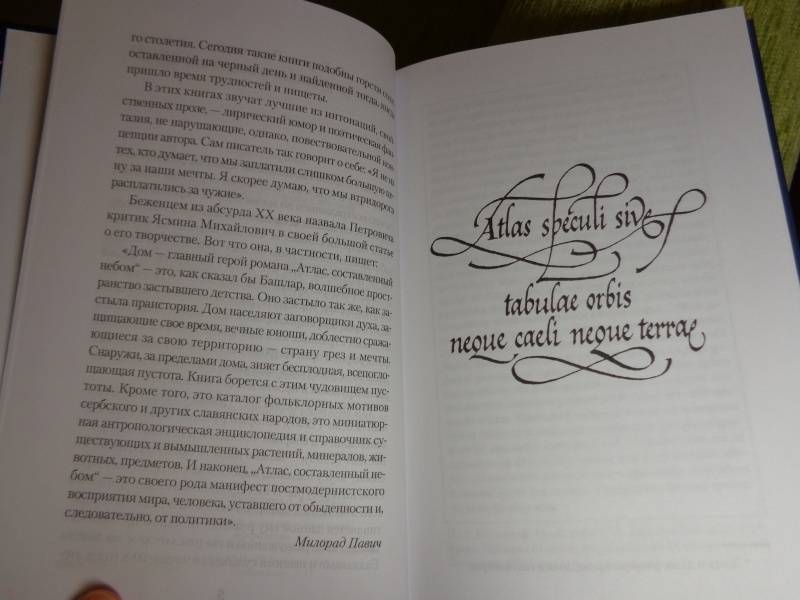 го столетия. Сегодня такие книги подобны горсти
оставленной на черный день и найденной тогда, когда
пришло время трудностей и нищеты.
В этих книгах звучат лучшие из интонаций, свой
ственных прозе, — лирический юмор и поэтическая фан
тазия, не нарушающие, однако, повествовательной кон
цепции автора. Сам писатель так говорит о себе: «Я не из
тех, кто думает, что мы заплатили слишком большую це
ну за наши мечты. Я скорее думаю, что мы втридорога
расплатились за чужие».
Беженцем из абсурда XX века назвала Петровича
критик Ясмина Михайлович в своей большой статье
о его творчестве. Вот что она, в частности, пишет:
«Дом — главный герой романа „Атлас, составленный
небом“ — это, как сказал бы Башлар, волшебное прост-
ранство застывшего детства. Оно застыло так же, как за-
стыла праистория. Дом населяют заговорщики духа, за-
щищающие свое время, вечные юноши, доблестно сража-
ющиеся за свою территорию — страну грез и мечты.
Снаружи, за пределами дома, зияет бесплодная, всепогло-
щающая пустота. Книга борется с этим чудовищем пус-
тоты. Кроме того, это каталог фольклорных мотивов
сербского и других славянских народов, это миниатюр-
ная антропологическая энциклопедия и справочник су-
ществующих и вымышленных растений, минералов, жи-
вотных, предметов. И наконец, „Атлас, составленный не-
бом“ — это своего рода манифест постмодернистского
восприятия мира, человека, уставшего от обыденности и,
следовательно, от политики».
Милорад Павич
Atlas speculi sive
tabulae orbis
neque caeli neque terrae